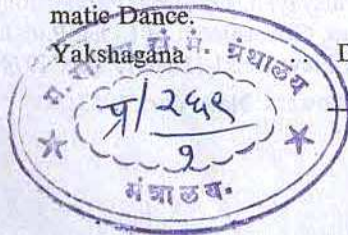 matic Dance.
Yakshagana . . D
म. रा. सां. मं. ग्रंथालय
प्र/२६९
१
मंत्रालय.